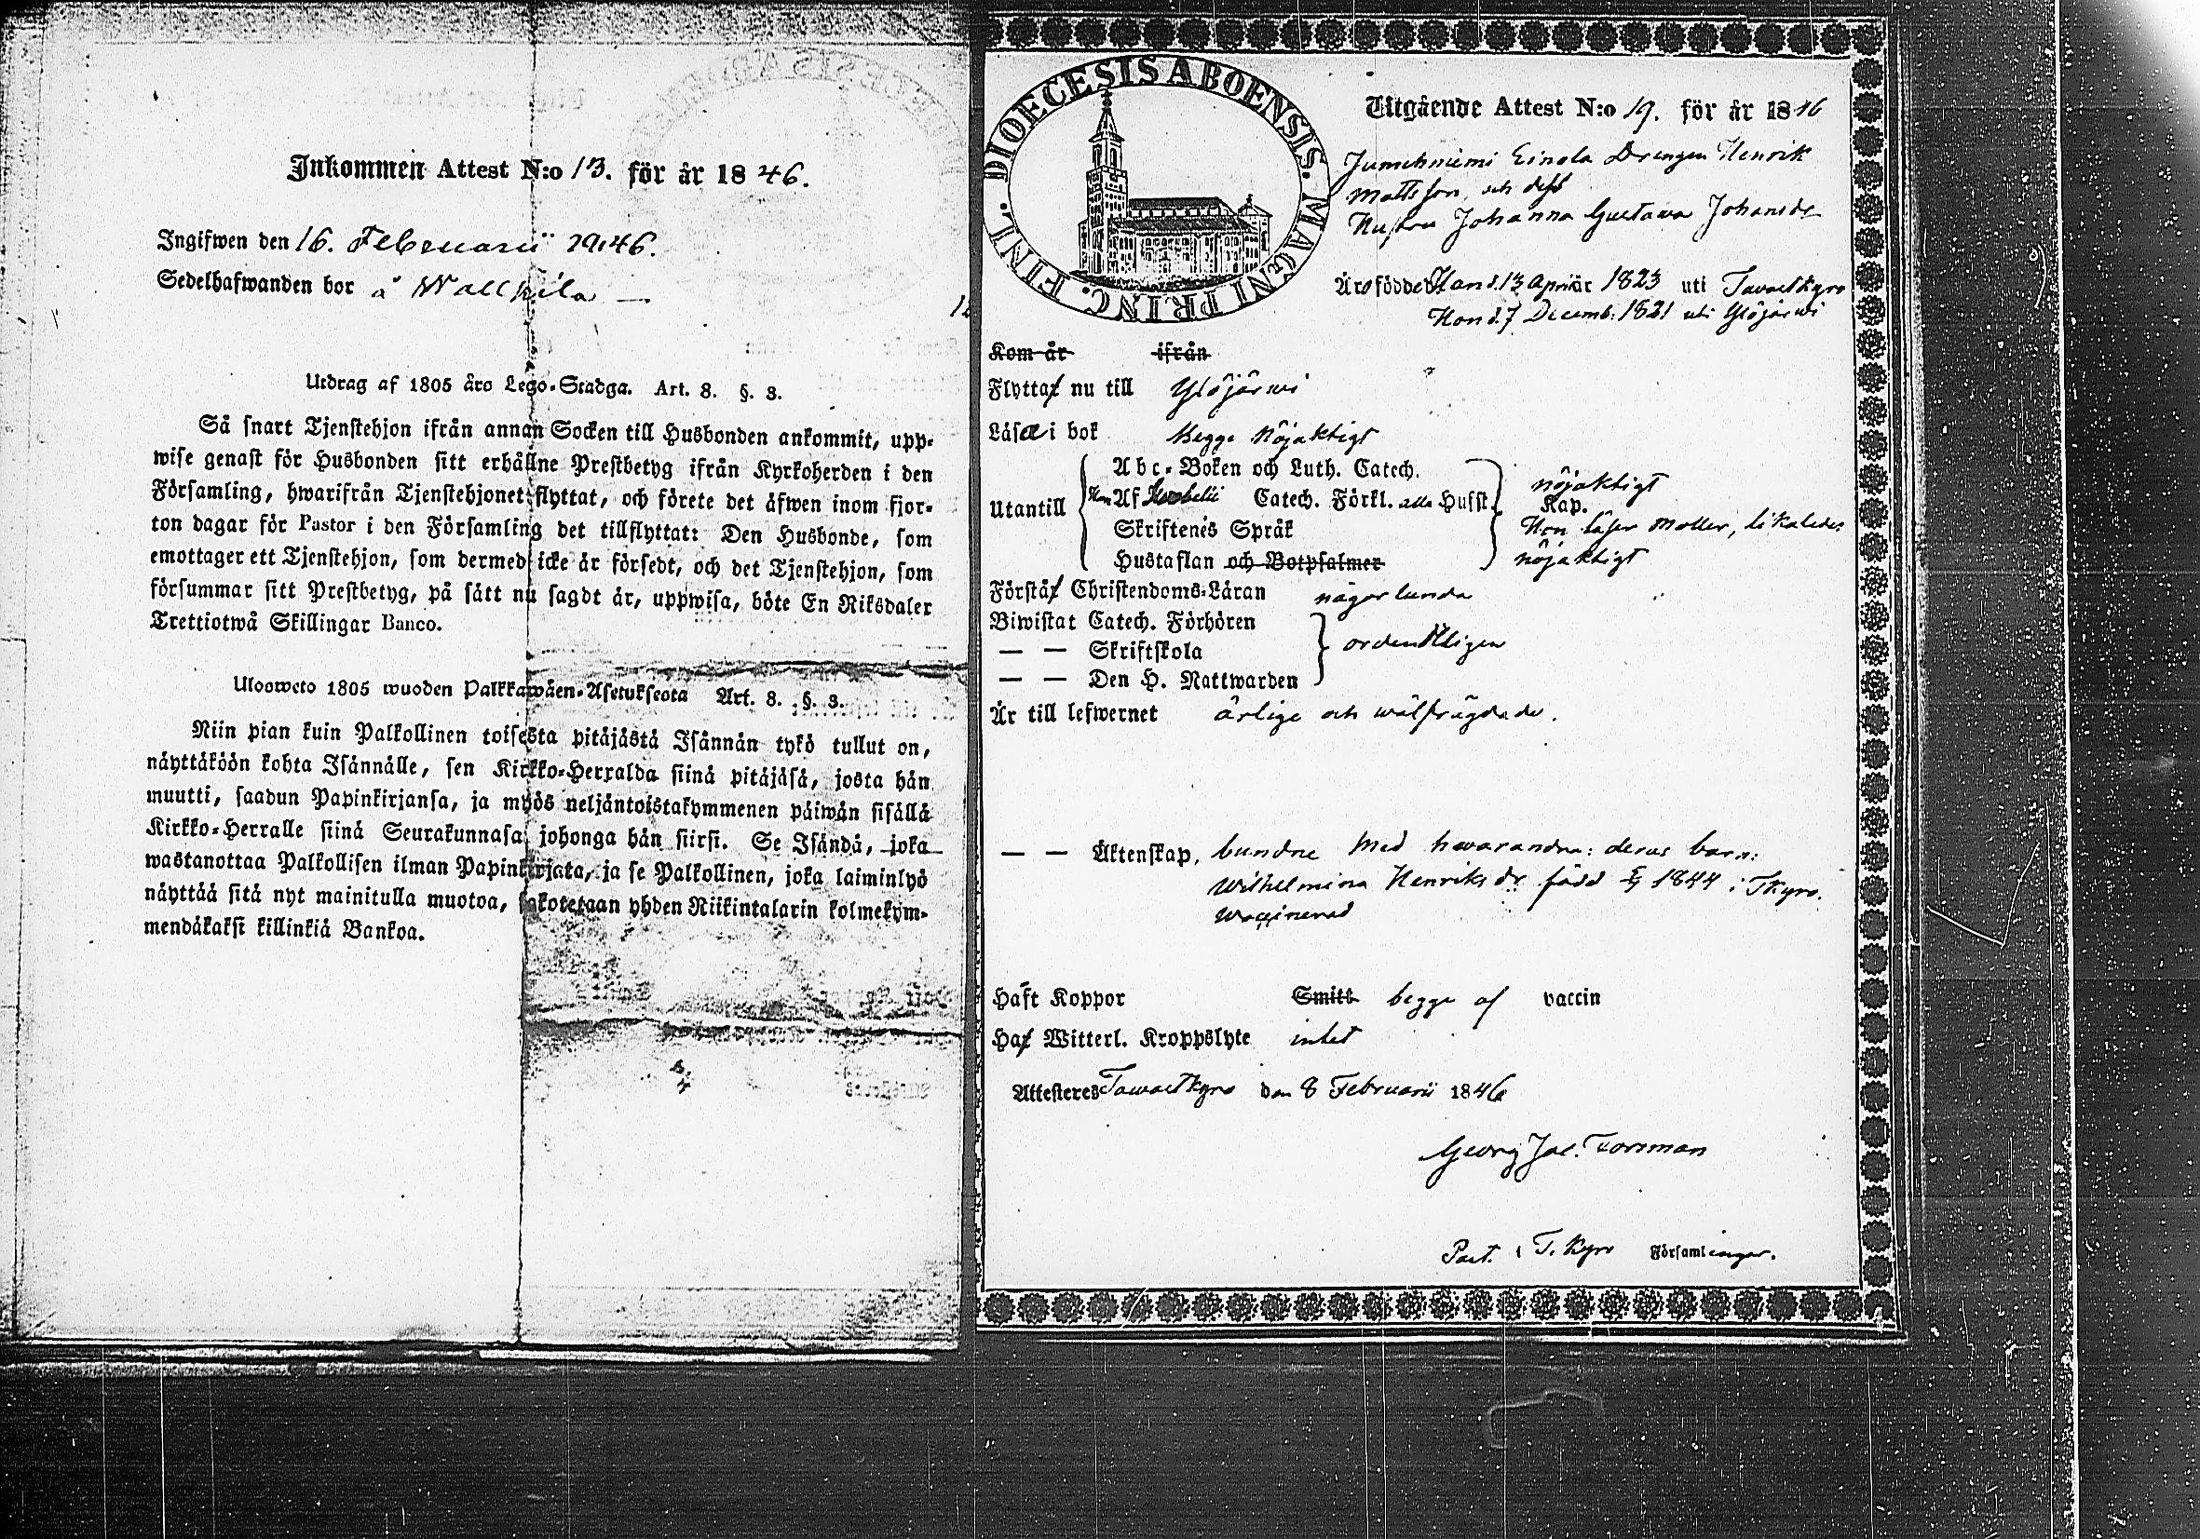 Inkommen Attest N:o 13. för år 1846.
Ingifwen den 16. Februarii 1846.
Sedelhafwanden bor å Wallkila —
Utdrag af 1805 åro Lego-Stadga. Art. 8. §. 3.
Så snart Tjenstehjon ifrån annan Socken till Husbonden ankommit, upp-
wise genast för Husbonden sitt erhållne Prestbetyg ifrån Kyrkoherden i den
Församling, hwarifrån Tjenstehjonet flyttat, och förete det äfwen inom fjor-
ton dagar för Pastor i den Församling det tillflyttat: Den Husbonde, som
emottager ett Tjenstehjon, som dermed icke är försedt, och det Tjenstehjon, som
försummar sitt Prestbetyg, på sätt nu sagdt är, uppwisa, böte En Riksdaler
Trettiotwå Skillingar Banco.
Ulosweto 1805 wuoden Palkkawäen-Asetuksesta Art. 8. §. 3.
Niin pian kuin Palkollinen toisesta pitäjästä Isännän tykö tullut on,
näyttäköön kohta Isännälle, sen Kirkko-Herralda siinä pitäjäsä, josta hän
muutti, saadun Papinkirjansa, ja myös neljäntoistakymmenen päiwän sisällä
Kirkko-Herralle siinä Seurakunnasa johonga hän siirsi. Se Isändä, joka
wastanottaa Palkollisen ilman Papinkirjata, ja se Palkollinen, joka laiminlyö
näyttää sitä nyt mainitulla muotoa, sakotetaan yhden Riikintalarin kolmekym-
mendäkaksi killinkiä Bankoa.
DIOECESIS ABOENSIS. MAGNI PRINC. FINL.
Utgående Attest N:o 19. för år 1846
Jumehniemi Einola Drengen Henrik
Mattsson, och dess
Hustru Johanna Gustava Johansdr
Äro födde Han d. 13 Apriil år 1823 uti Tavastkyro
Hon d. 7 Decemb: 1821 uti Ylöjärwi
Kom år ifrån
Flytta nu till Ylöjärwi
Läsa i bok Begge Nöjaktigt
Abc-Boken och Luth. Catech. nöjaktigt
Utantill Han Af Catech. Förkl. alla Hufst. Kap.
Skriftenes Språk Hon läser Möller, likaledes
Hustaflan och Botpsalmer nöjaktigt
Förstå Christendoms-Läran någorlunda
Biwistat Catech. Förhören
— — Skriftskola ordentligen
— — Den H. Nattwarden
Är till lefwernet ärlige och wälfrägdade.
— — Äktenskap, bundne med hwarandra: deras barn:
Wilhelmina Henriksdr född 1844 i Tkyro.
Waccinerad
Haft Koppor Smitt begge af vaccin
Ha Witterl. Kroppslyte intet
Attesteres Tawastkyro den 8 Februarii 1846
Georg Jac. Forsman
Past. i T. Kyro Församlingar.